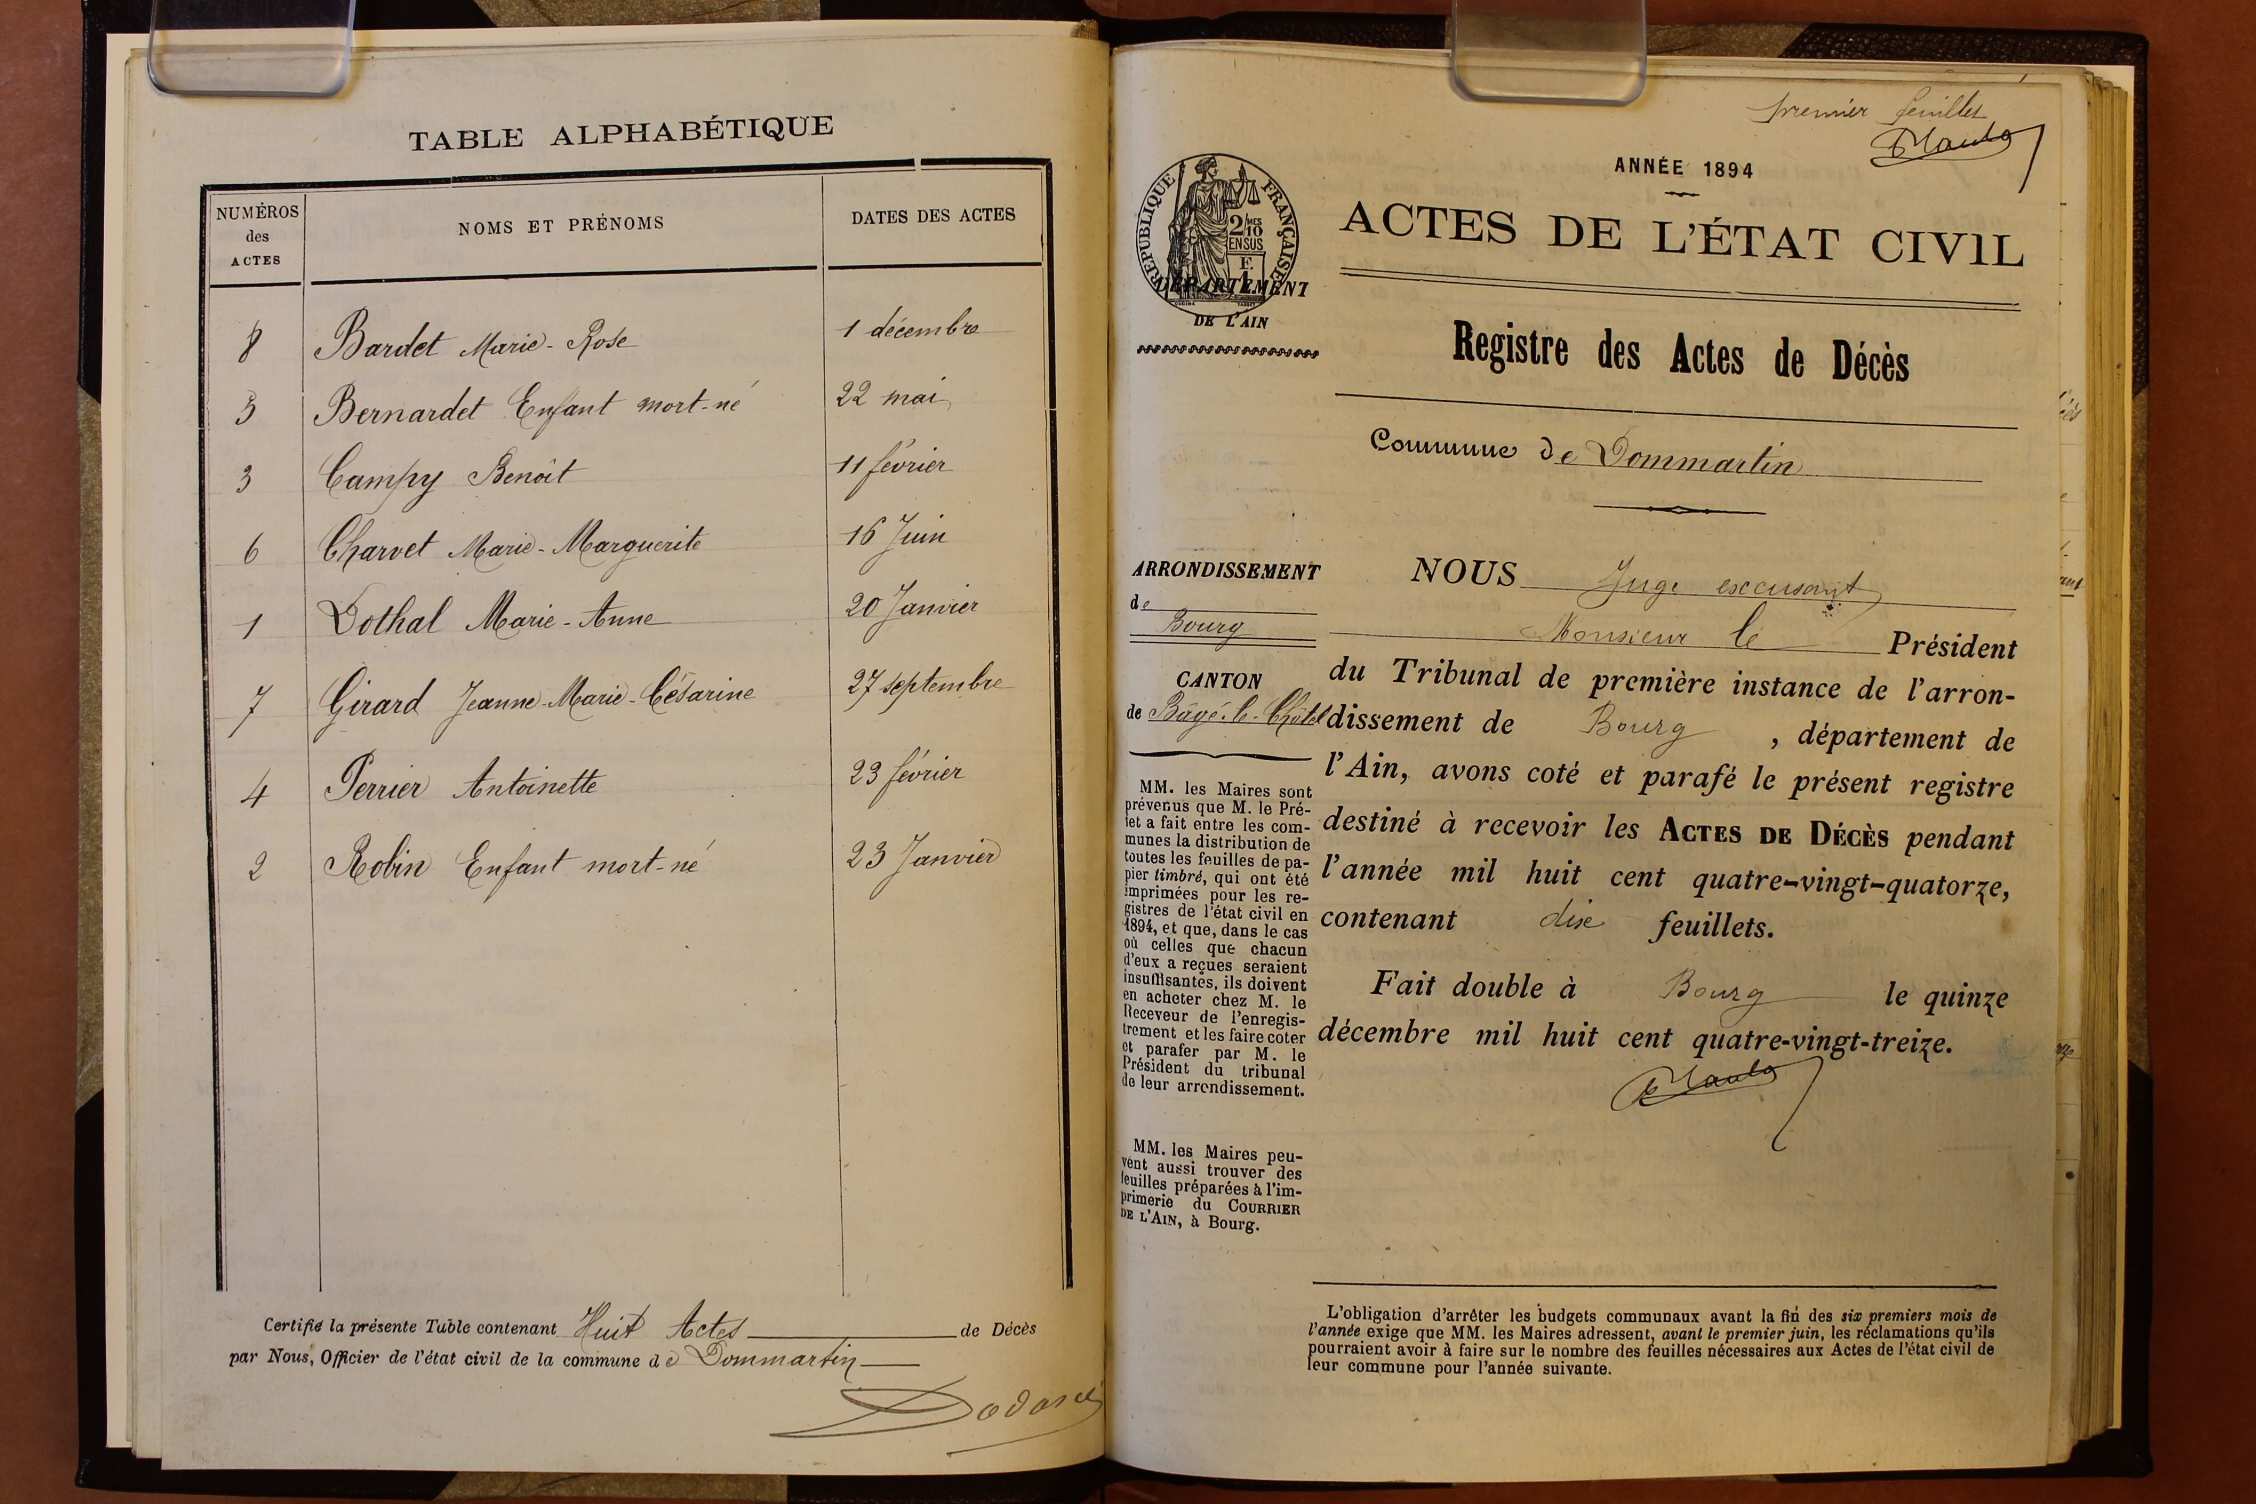 TABLE ALPHABÉTIQUE
NUMÉROS des ACTES
NOMS ET PRÉNOMS
DATES DES ACTES
8 Bardet Marie-Rose 1 décembre
5 Bernardet Enfant mort-né 22 mai
3 Campy Benoît 11 février
6 Charvet Marie-Marguerite 16 Juin
1 Dothal Marie-Anne 20 Janvier
7 Girard Jeanne-Marie-Césarine 27 septembre
4 Perrier Antoinette 23 février
2 Robin Enfant mort-né 23 Janvier
Certifié la présente Table contenant Huit Actes de Décès
par Nous, Officier de l'état civil de la commune de Dommartin
premier feuillet
ANNÉE 1894
RÉPUBLIQUE FRANÇAISE
2/10 MES
EN SUS
DÉPARTEMENT
DE L'AIN
ACTES DE L'ÉTAT CIVIL
Registre des Actes de Décès
Commune de Dommartin
ARRONDISSEMENT
de
Bourg
CANTON
de Bâgé-le-Châtel
MM. les Maires sont
prévenus que M. le Pré-
fet a fait entre les com-
munes la distribution de
toutes les feuilles de pa-
pier timbré, qui ont été
imprimées pour les re-
gistres de l'état civil en
1894, et que, dans le cas
où celles que chacun
d'eux a reçues seraient
insuffisantes, ils doivent
en acheter chez M. le
Receveur de l'enregis-
trement et les faire coter
et parafer par M. le
Président du tribunal
de leur arrondissement.
MM. les Maires peu-
vent aussi trouver des
feuilles préparées à l'im-
primerie du COURRIER
DE L'AIN, à Bourg.
NOUS Juge excusant
Monsieur le Président
du Tribunal de première instance de l'arron-
dissement de Bourg, département de
l'Ain, avons coté et parafé le présent registre
destiné à recevoir les ACTES DE DÉCÈS pendant
l'année mil huit cent quatre-vingt-quatorze,
contenant dix feuillets.
Fait double à Bourg le quinze
décembre mil huit cent quatre-vingt-treize.
L'obligation d'arrêter les budgets communaux avant la fin des six premiers mois de
l'année exige que MM. les Maires adressent, avant le premier juin, les réclamations qu'ils
pourraient avoir à faire sur le nombre des feuilles nécessaires aux Actes de l'état civil de
leur commune pour l'année suivante.